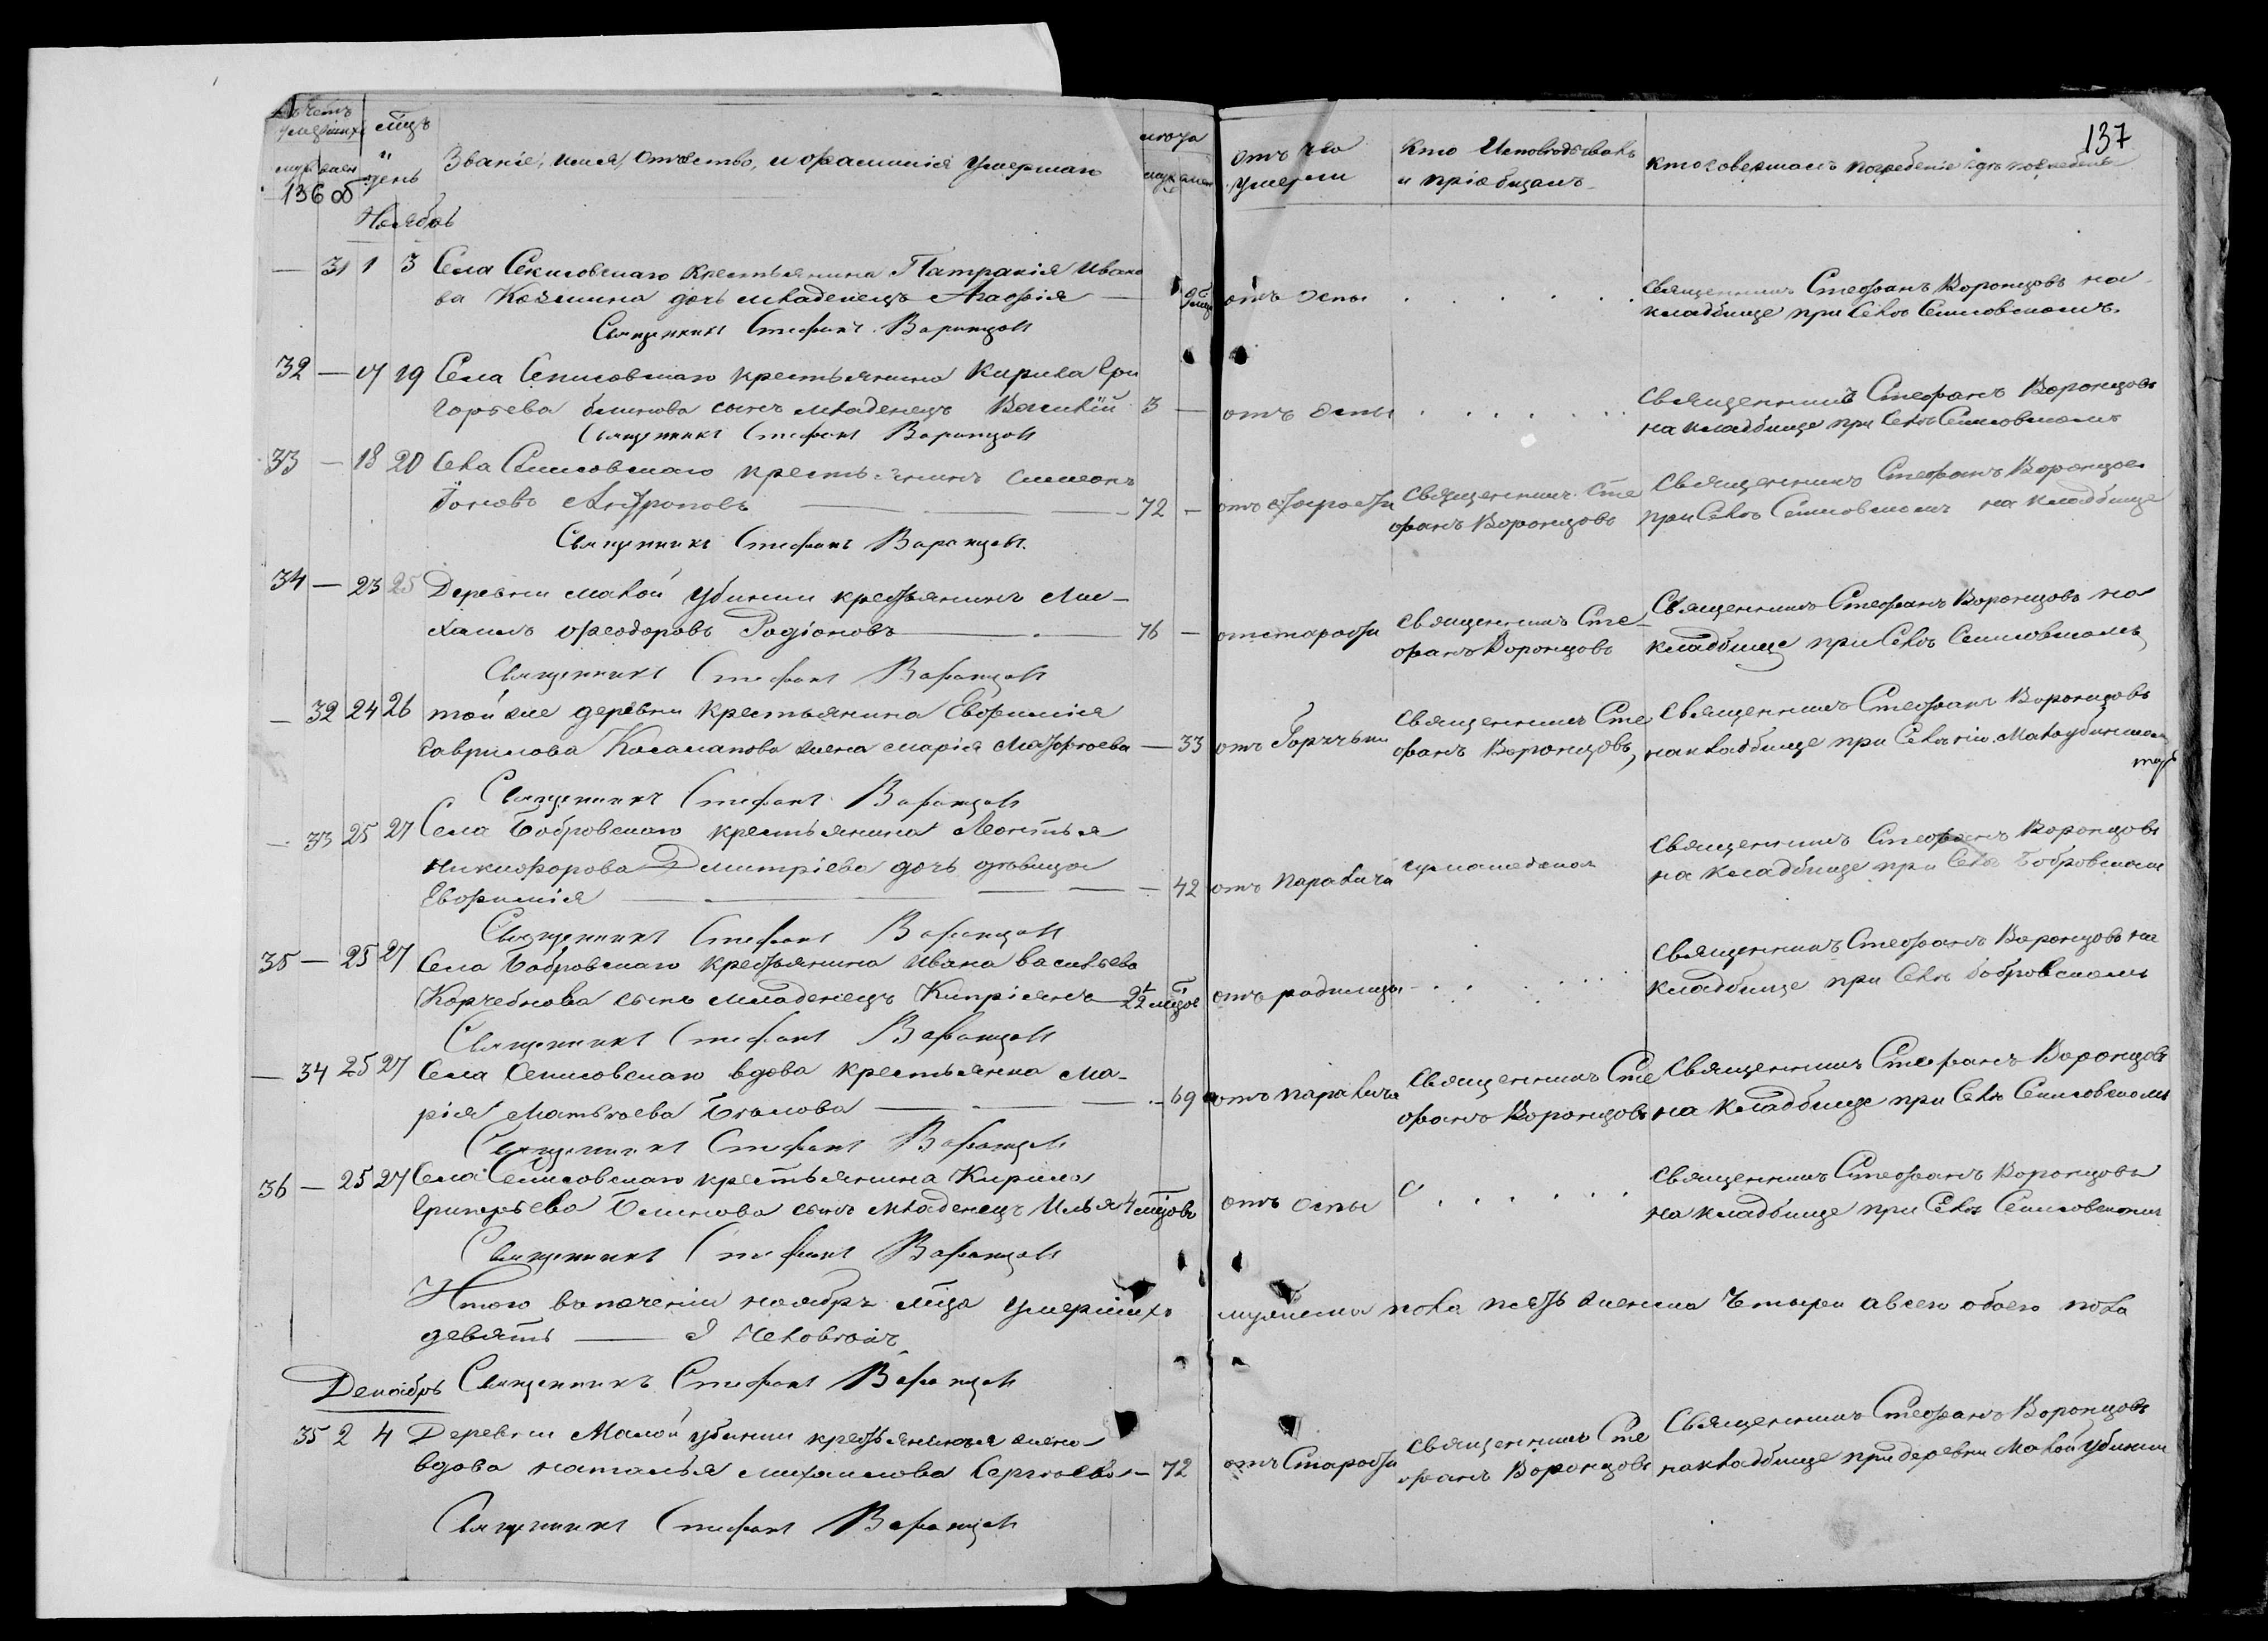 умершихъ
мцъ
и
день
Званіе, имя, отчество, и фамилія умершаго
лета
отъ чего
умерли
Кто Исповѣдывалъ
и пріобщалъ
кто совершалъ погребеніе и гдѣ погребены
137
136 об
Ноябрь
— 31 1 3 Села Секисовскаго крестьянина Патракія Ивано
ва Козмина дочь младенецъ Агафія —
отъ оспы
Священникъ Стефанъ Воронцовъ на
кладбище при Селѣ Секисовскомъ.
Священникъ Стефанъ Воронцовъ
32 — 17 19 Села Секисовскаго крестьянина Кирила Гри
горьева Блинова сынъ младенецъ Василій 3 —
отъ оспы
Священникъ Стефанъ Воронцовъ
на кладбище при Селѣ Секисовскомъ
Священникъ Стефанъ Воронцовъ
33 — 18 20 Села Секисовскаго крестьянинъ Симеонъ
Іоновъ Антроповъ — 72 —
отъ старости
Священникъ Сте
фанъ Воронцовъ
Священникъ Стефанъ Воронцовъ
при Селѣ Секисовскомъ на кладбище
Священникъ Стефанъ Воронцовъ.
34 — 23 25 Деревни Малой Убинки крестьянинъ Ми-
хаилъ Феодоровъ Родіоновъ — 76 —
отъ старости
Священникъ Сте-
фанъ Воронцовъ
Священникъ Стефанъ Воронцовъ на
кладбище при Селѣ Секисовскомъ
Священникъ Стефанъ Воронцовъ
— 32 24 26 той же деревни крестьянина Евфимія
Гаврилова Косаманова жена Марія Матфѣева — 33
отъ Горячьки
Священникъ Сте
фанъ Воронцовъ,
Священникъ Стефанъ Воронцовъ
на кладбище при
Священникъ Стефанъ Воронцовъ
— 33 25 27 Села Бобровскаго крестьянина Леонтья
Никифорова Дмитріева дочь дѣвица
Евфимія — 42
отъ паралича
сумашедшая
Священникъ Стефанъ Воронцовъ
на кладбище при Селѣ Бобровскомъ
Священникъ Стефанъ Воронцовъ
35 — 25 27 Села Бобровскаго крестьянина Ивана Васильева
Корчебнова сынъ младенецъ Кипріянъ —
отъ родимцы
Священникъ Стефанъ Воронцовъ на
кладбище при Селѣ Бобровскомъ
Священникъ Стефанъ Воронцовъ
— 34 25 27 Села Секисовскаго вдова крестьянка Ма-
рія Матвѣева Бѣлова — 69
отъ паралича
Священникъ Сте
фанъ Воронцовъ
Священникъ Стефанъ Воронцовъ
на кладбище при Селѣ Секисовскомъ
Священникъ Стефанъ Воронцовъ
36 — 25 27 Села Секисовскаго крестьянина Кирила
Григорьева Блинова сынъ младенецъ Илья 4 мцовъ
отъ оспы
Священникъ Стефанъ Воронцовъ
на кладбище при Селѣ Секисовскомъ
Священникъ Стефанъ Воронцовъ
Итого въ теченіи ноябрь мца умершихъ мужеска пола пять женска четыри а всего обоего пола
девять — 9 человѣкъ
Священникъ Стефанъ Воронцовъ
Декабрь
35 2 4 Деревни Малой Убинки крестьянская жена
вдова Наталья Михаилова Сергѣева — 72
отъ Старости
Священникъ Сте
фанъ Воронцовъ
Священникъ Стефанъ Воронцовъ
на кладбище при деревни Малой Убинки
Священникъ Стефанъ Воронцовъ